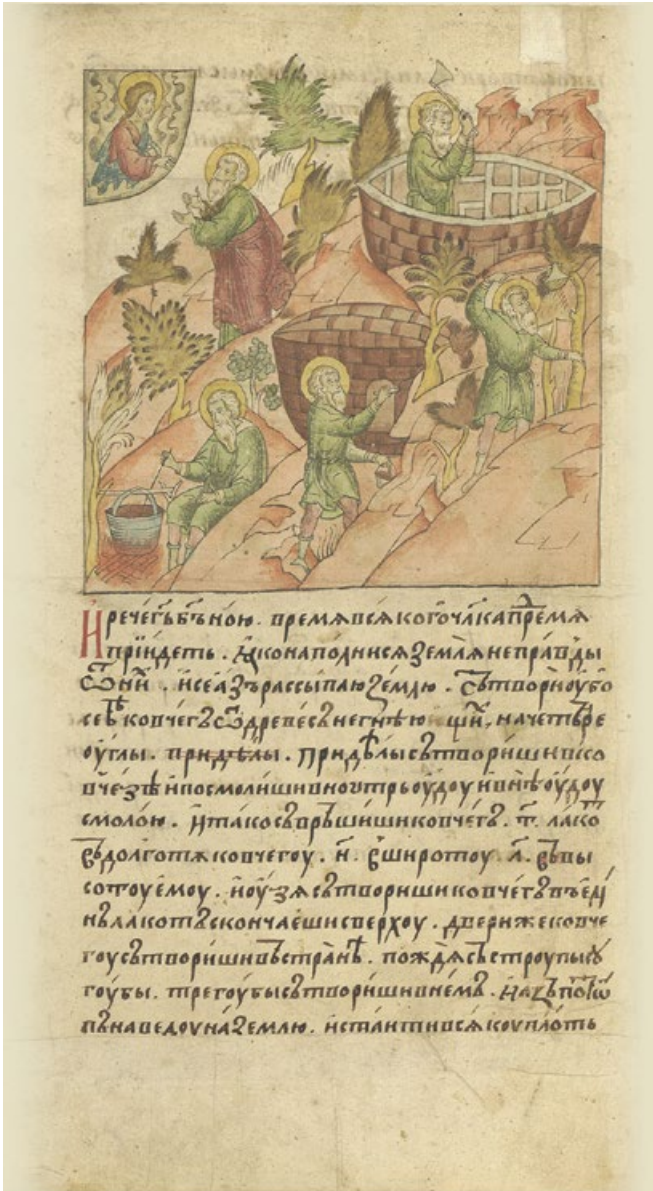 И рече гь бъ ною. время всякого члка пре мя
пріидеть. яко наполнися земля неправды
ѿ ни̾. и се азъ рассыпаю землю. сътвори оубо
себѣ ковчегъ ѿ древесъ негнѣю щи̾. на четыре
оуглы. придѣлы. придѣлы сътвориши въ ко
вчезѣ и посмолиши вноутрьоудоу и внѣоудоу
смолою. и тако съврьшиши ковчегъ. т҃. лако
въ долготѫ ковчегоу. н҃. в широтоу. л҃. въ вы
сотоу емоу. и оузя сътвориши ковчегъ въ еді
нъ лакотъ скончаеши сверхоу. двери же ковче
гоу сътвориши въ странѣ.
гоубы. трегоубы сътвориши в немъ. азъ пото
пъ наведоу на землю. истлити всякоу плоть